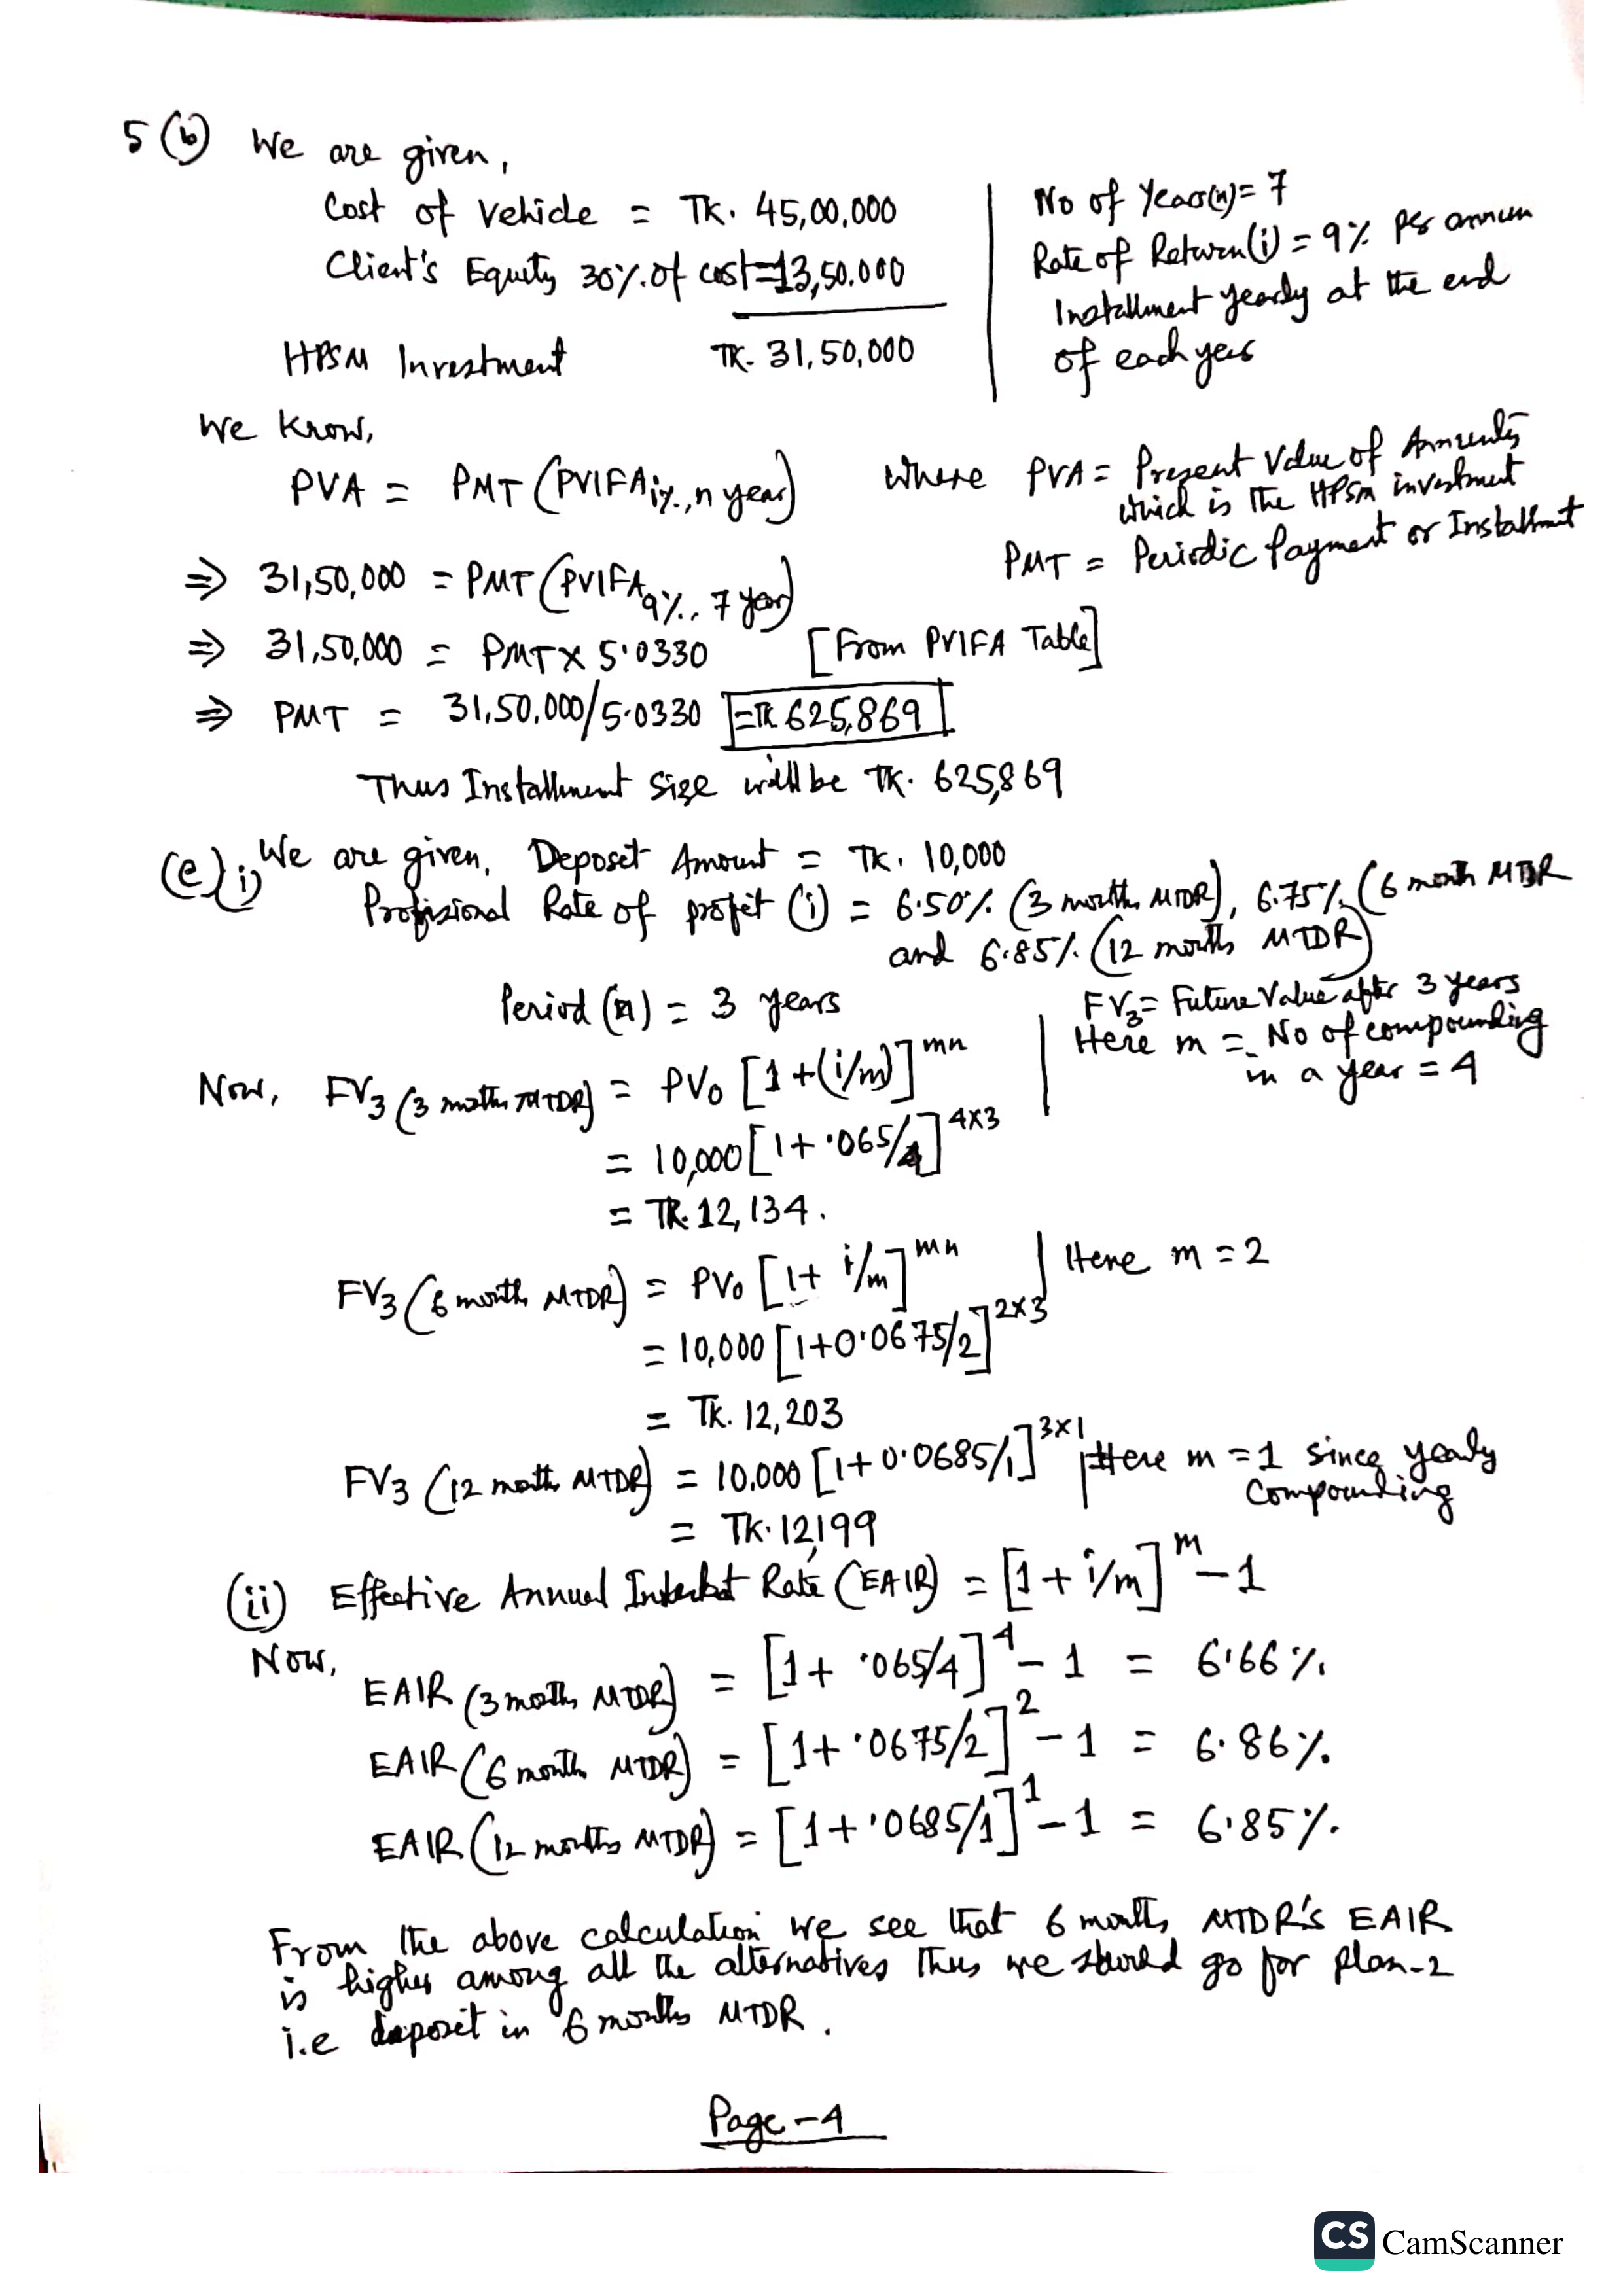 5 (b) We are given,
Cost of Vehicle = TK. 45,00,000
Client's Equity 30%.of cost=13,50.000
HPSM Investment TK. 31,50,000
No of Year(n)= 7
Rate of Return(i) = 9% per annum
Installment yearly at the end
of each year
We Know,
PVA = PMT (PVIFAi%.,n year)
Where PVA = Present Value of Annuity
which is the HPSM investment
PMT = Periodic Payment or Installment
⇒ 31,50,000 = PMT (PVIFA9%., 7 year)
⇒ 31,50,000 = PMT X 5.0330 [From PVIFA Table]
⇒ PMT = 31,50,000/5.0330 =TK 625,869
Thus Installment Size will be TK. 625,869
(c) i) We are given, Deposet Amount = TK. 10,000
Profisional Rate of profit (i) = 6.50%. (3 month MTDR), 6.75%. (6 month MTDR
and 6.85%. (12 months MTDR)
Period (n) = 3 years
FV3= Future Value after 3 years
Here m = No of compounding
in a year = 4
Now, FV3 (3 months MTDR) = PV0 [1+(i/m)]^mn
= 10,000 [1+ .065/4]^4X3
= TK. 12,134.
FV3 (6 month MTDR) = PV0 [1+ i/m]^mn Here m = 2
= 10,000 [1+0.0675/2]^2X3
= TK. 12,203
FV3 (12 month MTDR) = 10,000 [1+0.0685/1]^3x1 Here m = 1 since yearly
Compounding
= TK. 12,199
(ii) Effective Annual Interest Rate (EAIR) = [1+ i/m]^m - 1
Now,
EAIR (3 months MTDR) = [1+ .065/4]^4 - 1 = 6.66%.
EAIR (6 month MTDR) = [1+ .0675/2]^2 - 1 = 6.86%.
EAIR (12 months MTDR) = [1+ .0685/1]^1 - 1 = 6.85%.
From the above calculation we see that 6 months MTDR's EAIR
is higher among all the alternatives Thus we should go for plan-2
i.e deposit in 6 months MTDR.
Page -4
CS CamScanner